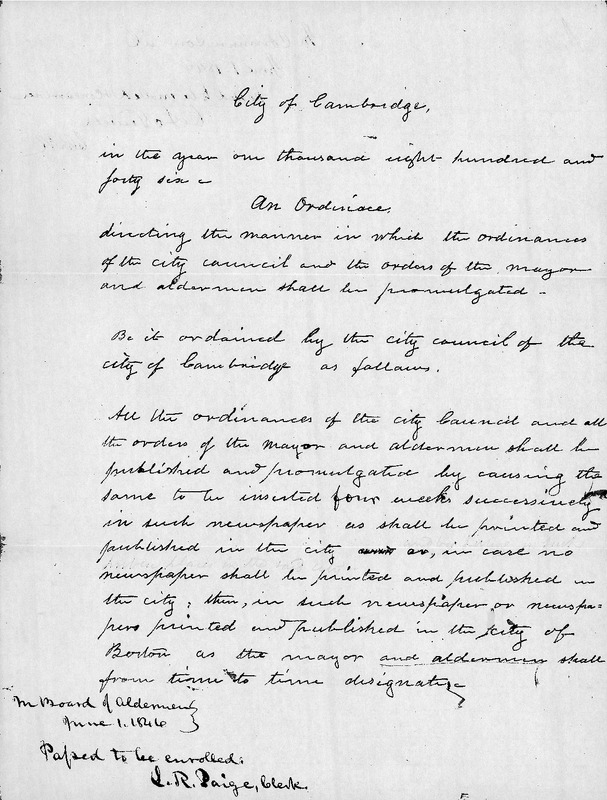 City of Cambridge,
in the year one thousand eight hundred and
forty six -
An Ordinace,
directing the manner in which the ordinances
of the city council and the orders of the mayor
and aldermen shall be promulgated -
Be it ordained by the city council of the
city of Cambridge as follows.
All the ordinances of the city Council and all
the orders of the mayor and aldermen shall be
published and promulgated by causing the
same to be inserted four weeks successively
in such newspaper as shall be printed and
published in the city or, in case no
newspaper shall be printed and published in
the city; then, in such newspaper or newspa-
pers printed and published in the city of
Boston as the mayor and aldermen shall
from time to time designate
In Board of Aldermen
June 1. 1846
Passed to be enrolled.
L. R. Paige, Clerk.